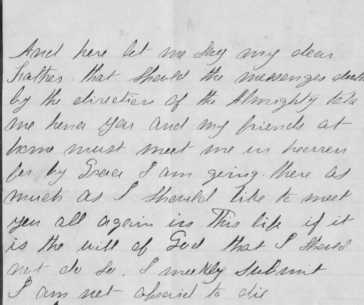 And here let me say my dear
Father that should the messenger death
by the direction of the Almighty take
me hence you and my friends at
home must meet me in heaven
for by Grace I am going there as
much as I should like to meet
you all again in This life if it
is the will of God that I should
not do so. I meekly submit
I am not afraid to die